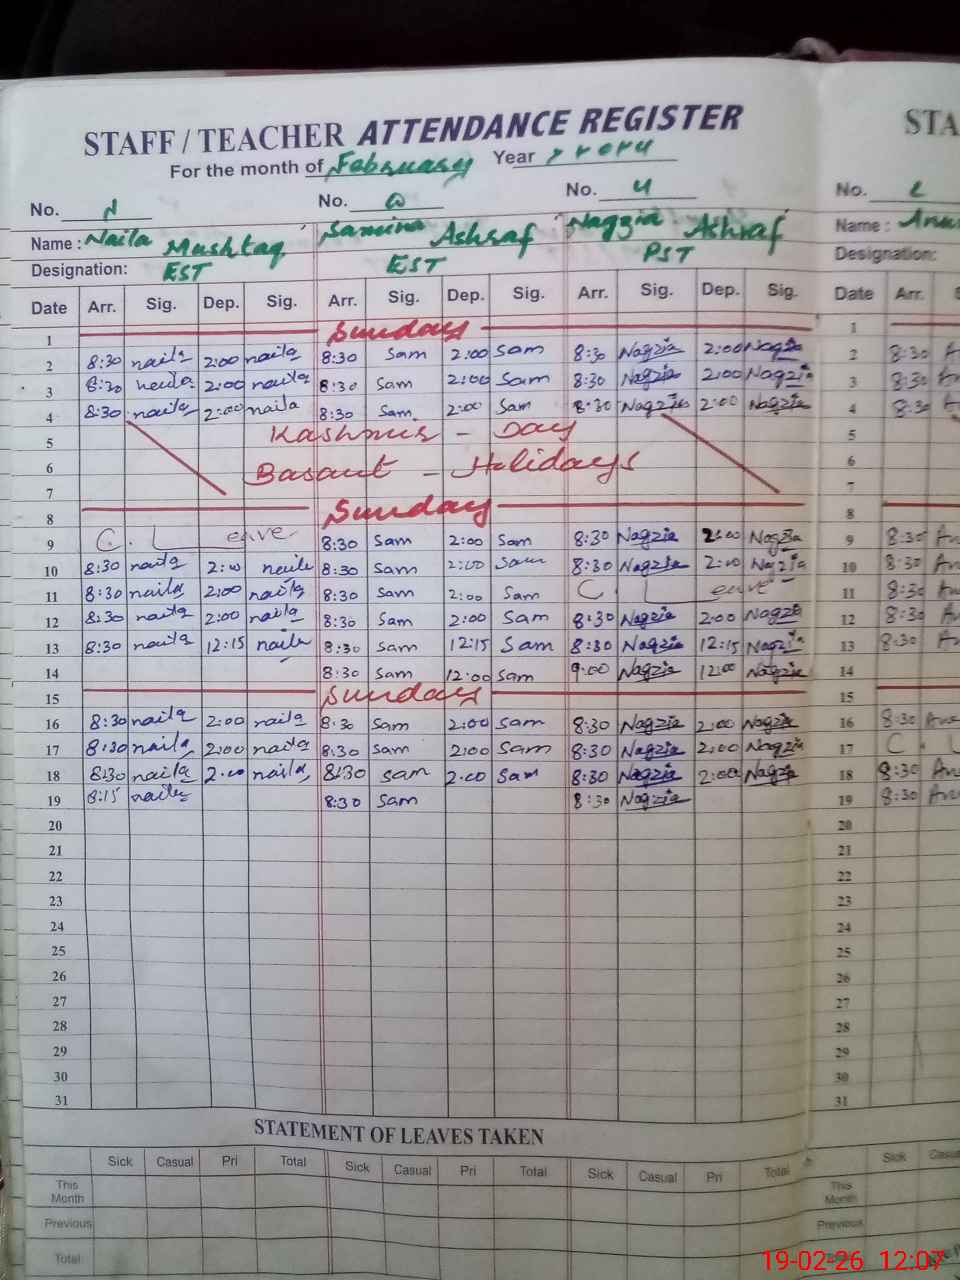 STAFF / TEACHER ATTENDANCE REGISTER STA
For the month of February Year ۲۰۲۶
No. No. No. ۴ No.
Name : Naila Mushtaq Samina Ashraf Nagzia Ashraf Name :
Designation: EST EST PST Designation:
Date Arr. Sig. Dep. Sig. Arr. Sig. Dep. Sig. Arr. Sig. Dep. Sig. Date Arr. S
1 Sunday 1
2 8:30 naila 2:00 naila 8:30 Sam 2:00 Sam 8:30 Nagzia 2:00 Nagzia 2 8:30
3 8:30 naila 2:00 naila 8:30 Sam 2:00 Sam 8:30 Nagzia 2:00 Nagzia 3 8:30
4 8:30 naila 2:00 naila 8:30 Sam 2:00 Sam 8:30 Nagzia 2:00 Nagzia 4 8:30
5 Kashmir - Day 5
6 Basant - Holidays 6
7 7
8 Sunday 8
9 C. Leave 8:30 Sam 2:00 Sam 8:30 Nagzia 2:00 Nagzia 9 8:30 An
10 8:30 naila 2:00 naila 8:30 Sam 2:00 Sam 8:30 Nagzia 2:00 Nagzia 10 8:30 An
11 8:30 naila 2:00 naila 8:30 Sam 2:00 Sam C. Leave 11 8:30 An
12 8:30 naila 2:00 naila 8:30 Sam 2:00 Sam 8:30 Nagzia 2:00 Nagzia 12 8:30 An
13 8:30 naila 12:15 naila 8:30 Sam 12:15 Sam 8:30 Nagzia 12:15 Nagzia 13 8:30 An
14 8:30 Sam 12:00 Sam 9:00 Nagzia 12:00 Nagzia 14
15 Sunday 15
16 8:30 naila 2:00 naila 8:30 Sam 2:00 Sam 8:30 Nagzia 2:00 Nagzia 16 8:30
17 8:30 naila 2:00 naila 8:30 Sam 2:00 Sam 8:30 Nagzia 2:00 Nagzia 17 C. L
18 8:30 naila 2:00 naila 8:30 Sam 2:00 Sam 8:30 Nagzia 2:00 Nagzia 18 8:30
19 8:15 naila 8:30 Sam 8:30 Nagzia 19 8:30
20 20
21 21
22 22
23 23
24 24
25 25
26 26
27 27
28 28
29 29
30 30
31 31
STATEMENT OF LEAVES TAKEN
Sick Casual Pri Total Sick Casual Pri Total Sick Casual Pri Total Sick Casua
This Month This Month
Previous Previous
Total Total
19-02-26 12:07